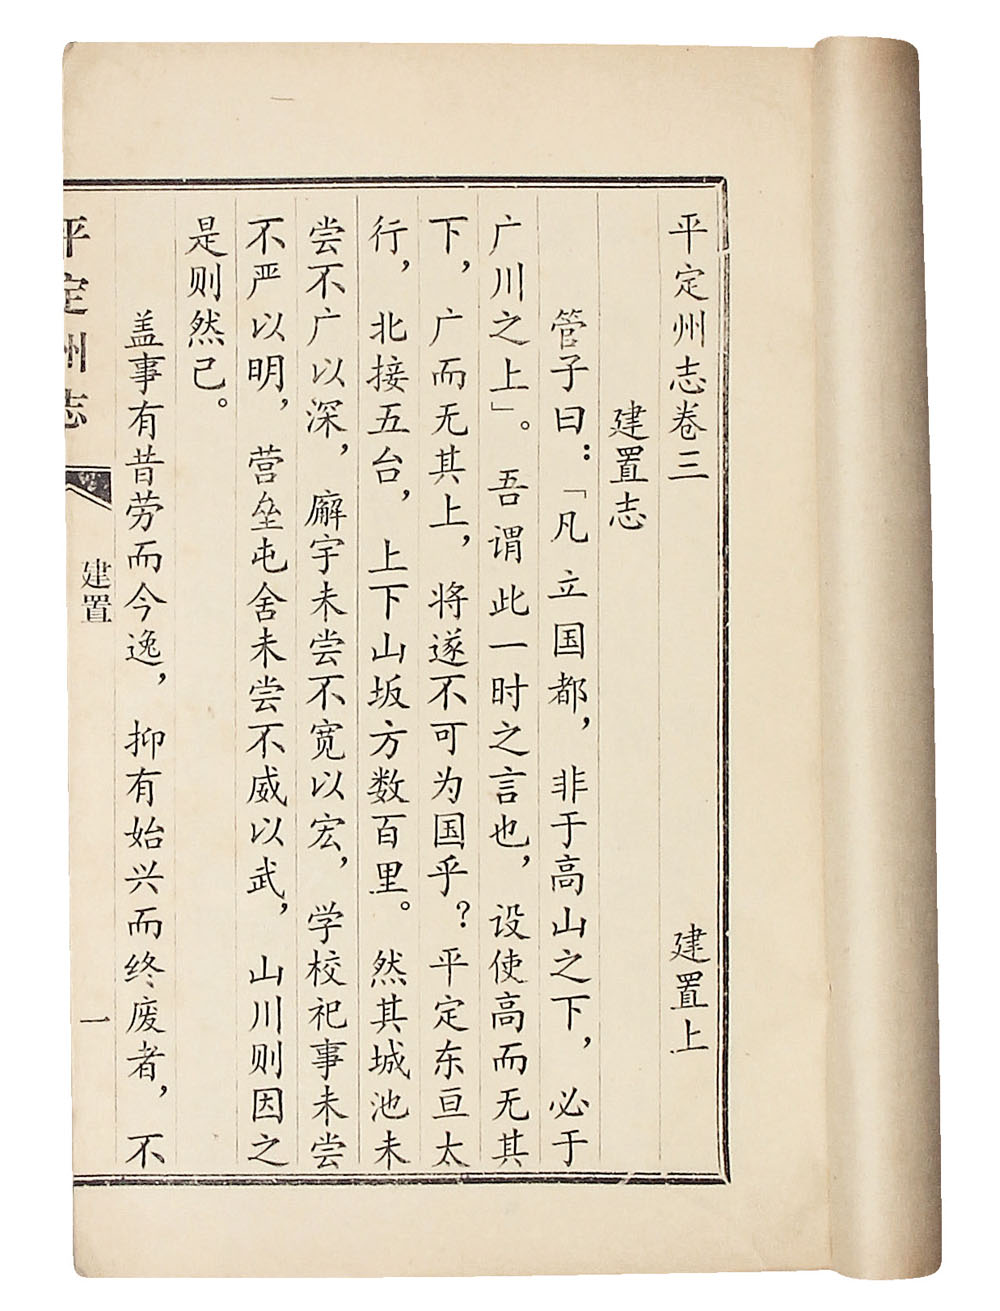 平定州志卷三 建置上
建置志
管子曰：「凡立国都，非于高山之下，必于
广川之上」。吾谓此一时之言也，设使高而无其
下，广而无其上，将遂不可为国乎？平定东亘太
行，北接五台，上下山坂方数百里。然其城池未
尝不广以深，廨宇未尝不宽以宏，学校祀事未尝
不严以明，营垒屯舍未尝不威以武，山川则因之
是则然已。
盖事有昔劳而今逸，抑有始兴而终废者，不
平定州志
建置
一